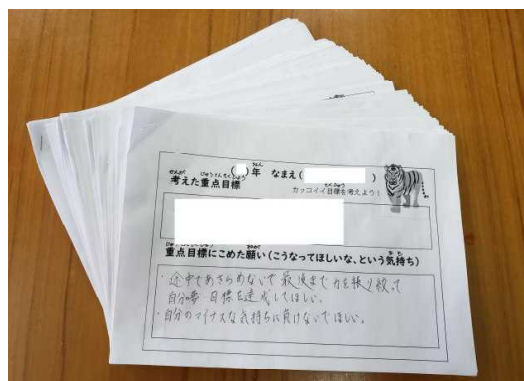 ( )年 なまえ( )
考えた重点目標
カッコイイ目標を考えよう!
重点目標にこめた願い(こうなってほしいな、という気持ち)
・途中であきらめないで最後まで力を振り絞って
自分の夢・目標を達成してほしい。
・自分のマイナスな気持ちに負けないでほしい。